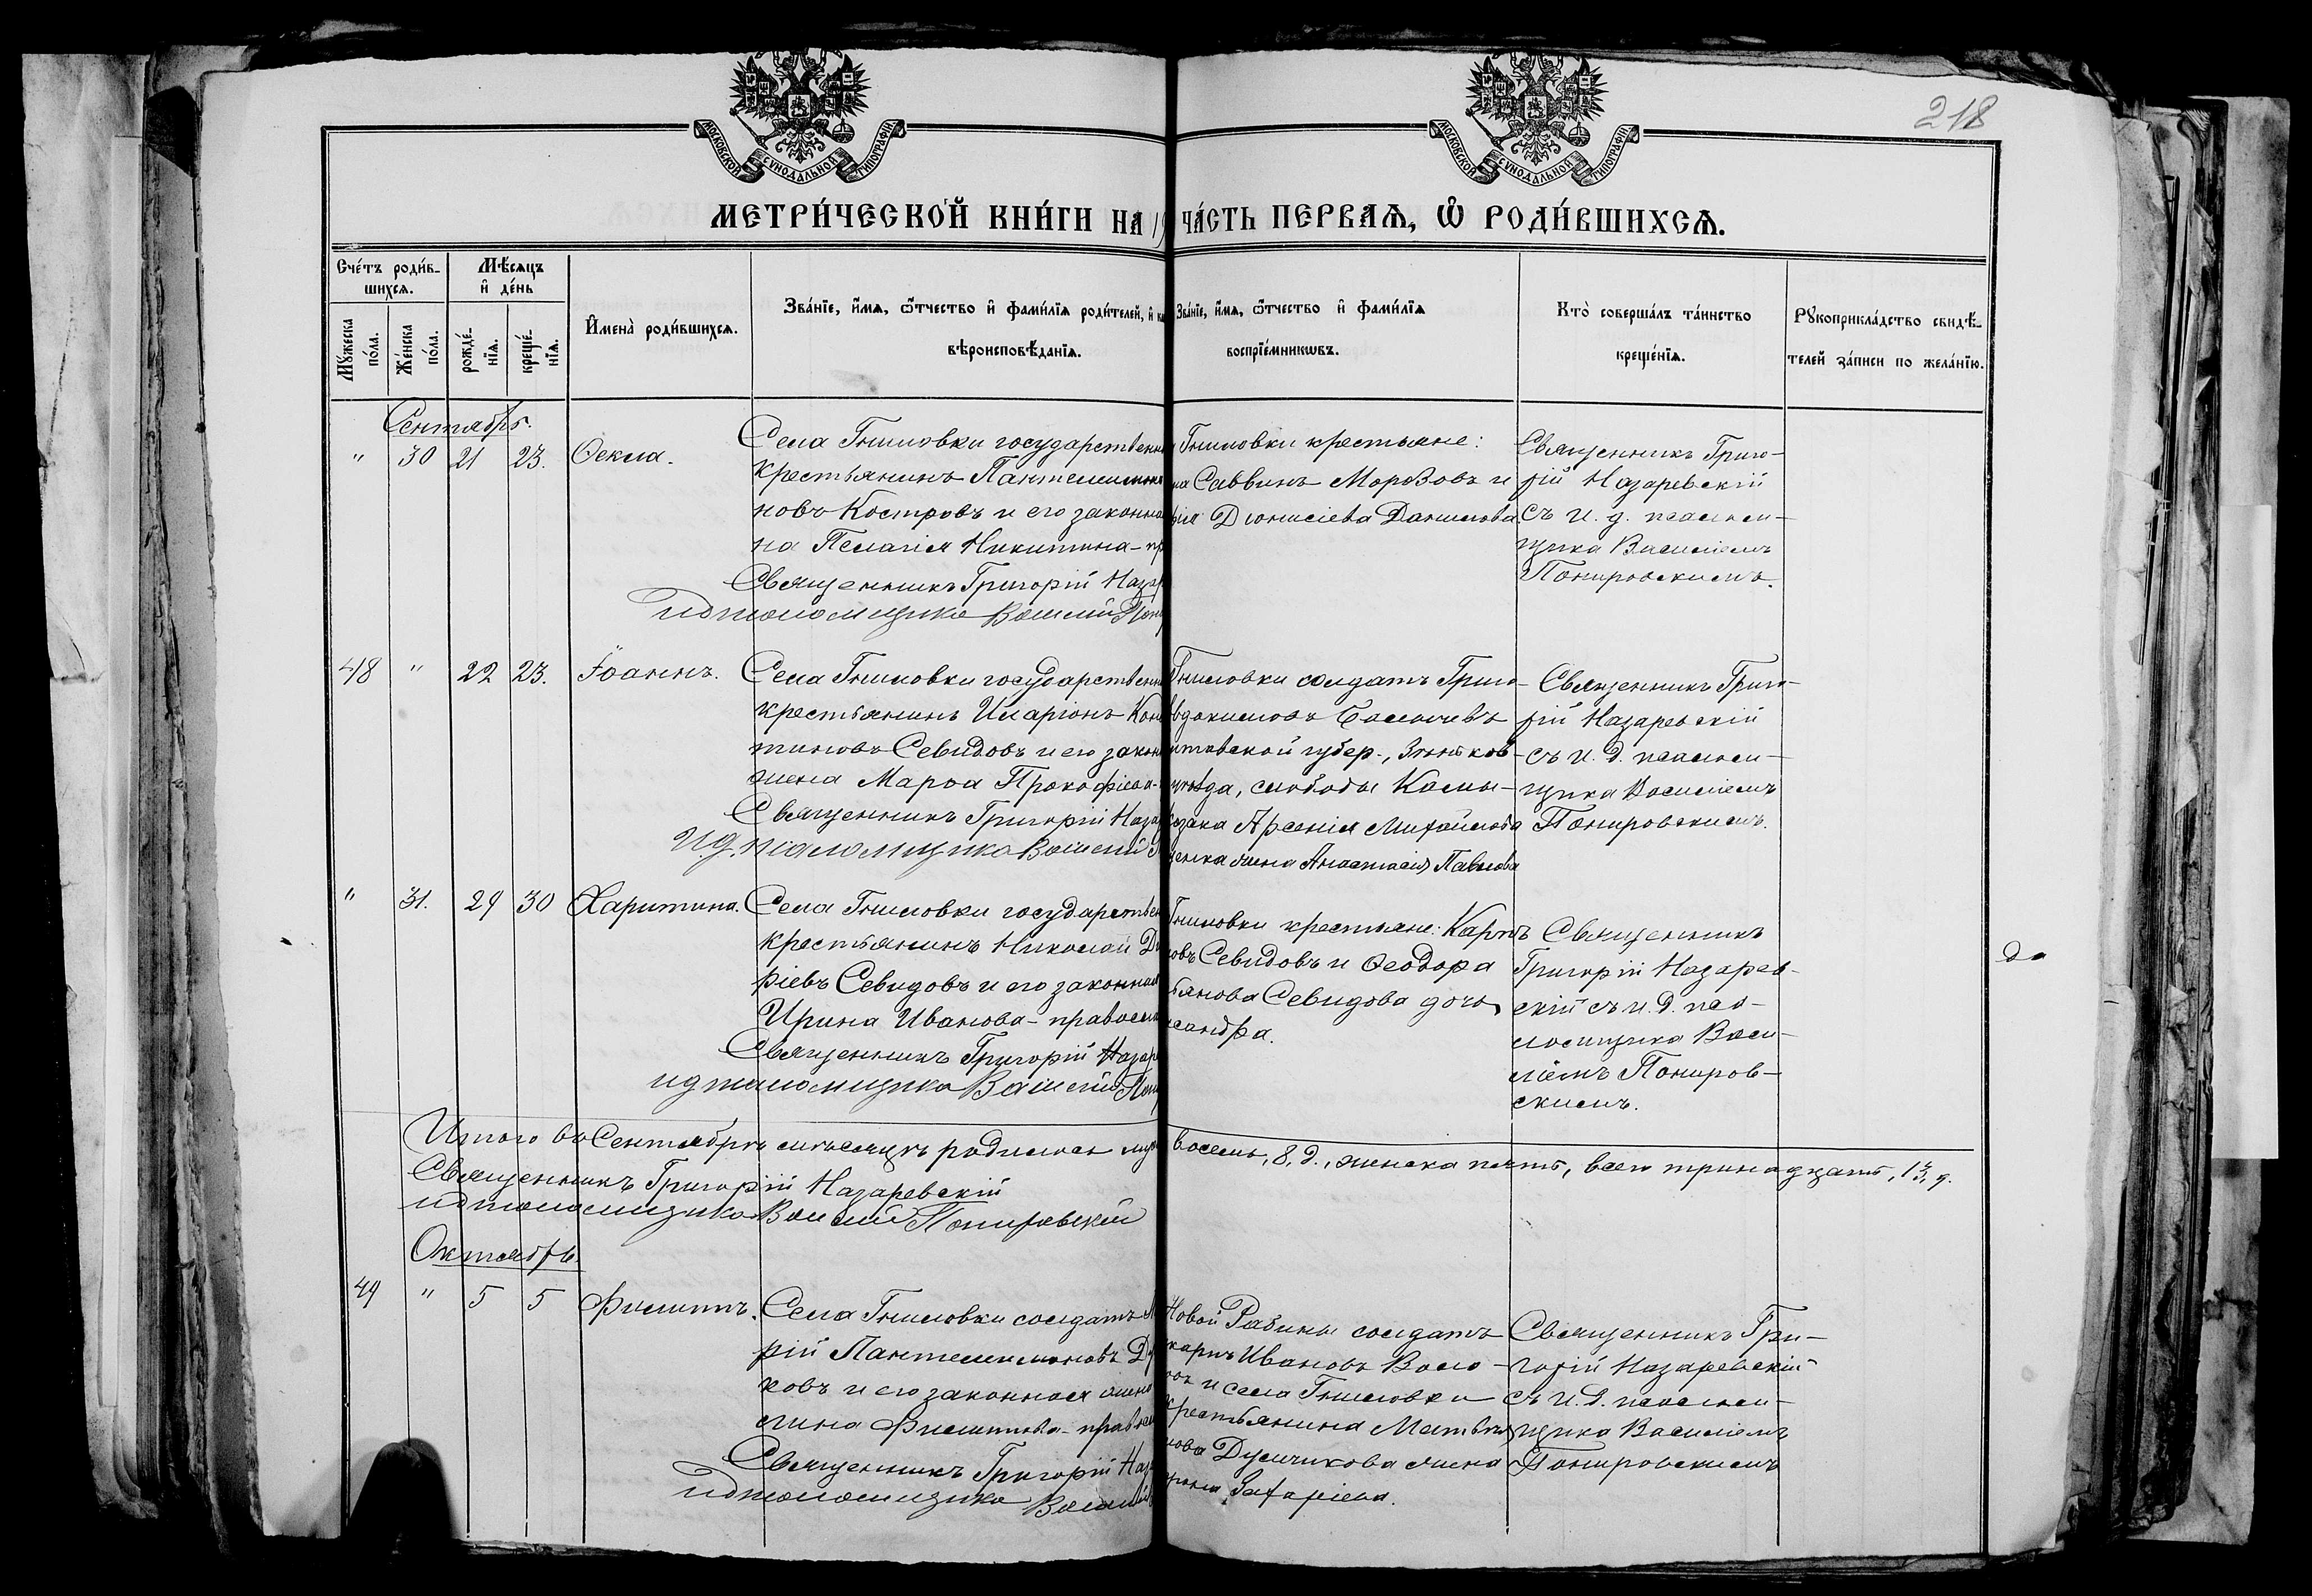 218
МОСКОВСКОЙ СѴНОДАЛЬНОЙ ТИПОГРАФІИ
МОСКОВСКОЙ СѴНОДАЛЬНОЙ ТИПОГРАФІИ
МЕТРИ́ЧЕСКОЙ КНИ́ГИ НА 19
ЧА́СТЬ ПЕРВАЯ, Ѡ РОДИ́ВШИХСЯ.
Сче́тъ роди́в-
шихся.
Мѣсяцъ
и҆ де́нь
Мꙋжеска по́ла.
Же́нска по́ла.
рожде́-нїя.
креще́-нїя.
И҆мена̀ роди́вшихся.
Зва́нїе, и҆́мя, ѻ҆́тчество и҆ фами́лїя роди́телей, и҆
вѣроисповѣ́данїя.
Зва́нїе, и҆́мя, ѻ҆́тчество и҆ фами́лїя
воспрїе́мникѡвъ.
Кто̀ соверша́лъ та́инство
креще́нїя.
Рꙋкоприкла́дство свидѣ́-
телей за́писи по жела́нїю.
Сентябрь.
" 30 21 23. Ѳекла.
Села Гниловки государствен
крестьянинъ Пантелеимон
новъ Костровъ и его законна
на Пелагія Никитина - пр
Священникъ Григорій Назар
ид псаломщика Василій Пони
Гниловки крестьяне:
на Саввинъ Морозовъ и
рія Діонисіева Данилова
Священникъ Григо-
рій Назаревскій
съ и. д. псалом-
щика Василіемъ
Понировскимъ.
48 " 22 23. Іоаннъ.
Села Гниловки государственн
крестьянинъ Иларіонъ Кон
тиновъ Севидовъ и его закон
жена Марѳа Прокофіева -
Священникъ Григорій Назар
И.д. псаломщика Василій П
Гниловки солдатъ Григо-
вдокимовъ
лтавской губер., Зѣньков-
уѣзда, слободы Камы-
козака Арсенія Михайлова
енка жена Анастасія Павлова
Священникъ Григо-
рій Назаревскій
съ и. д. псалом-
щика Василіемъ
Понировскимъ.
" 31. 29 30 Харитина.
Села Гниловки государствен
крестьянинъ Николай Д
ріевъ Севидовъ и его законная
Ирина Иванова - правосл
Священникъ Григорій Назар
ид псаломщика Василій Пони
Гниловки крестьяне: Карпъ
овъ Севидовъ и Ѳеодора
ьянова Севидова дочь
ксандра.
Священникъ
Григорій Назарев-
скій съ и. д. пса-
ломщика Васи-
ліемъ Понировскимъ.
Итого въ Сентябрѣ мѣсяцѣ родилось муж
восемь, 8, д., женска пять, всего тринадцать, 13, д.
Священникъ Григорій Назаревскій
ид псаломщика Василій Понировскій
Октябрь.
49 " 5 5 Филиппъ.
Села Гниловки солдатъ
рій Пантелеимоновъ Ду
ковъ и его законная жена
лина Филиппова - правосл
Священникъ Григорій Наз
ид псаломщика Василій
Новой Рябины солдатъ
карпъ Ивановъ Воло-
и села Гниловки
крестьянина Матвѣя
нова Думчикова жена
Захаріева.
Священникъ Гри-
горій Назаревскій
съ и. д. псалом-
щика Василіемъ
Понировскимъ